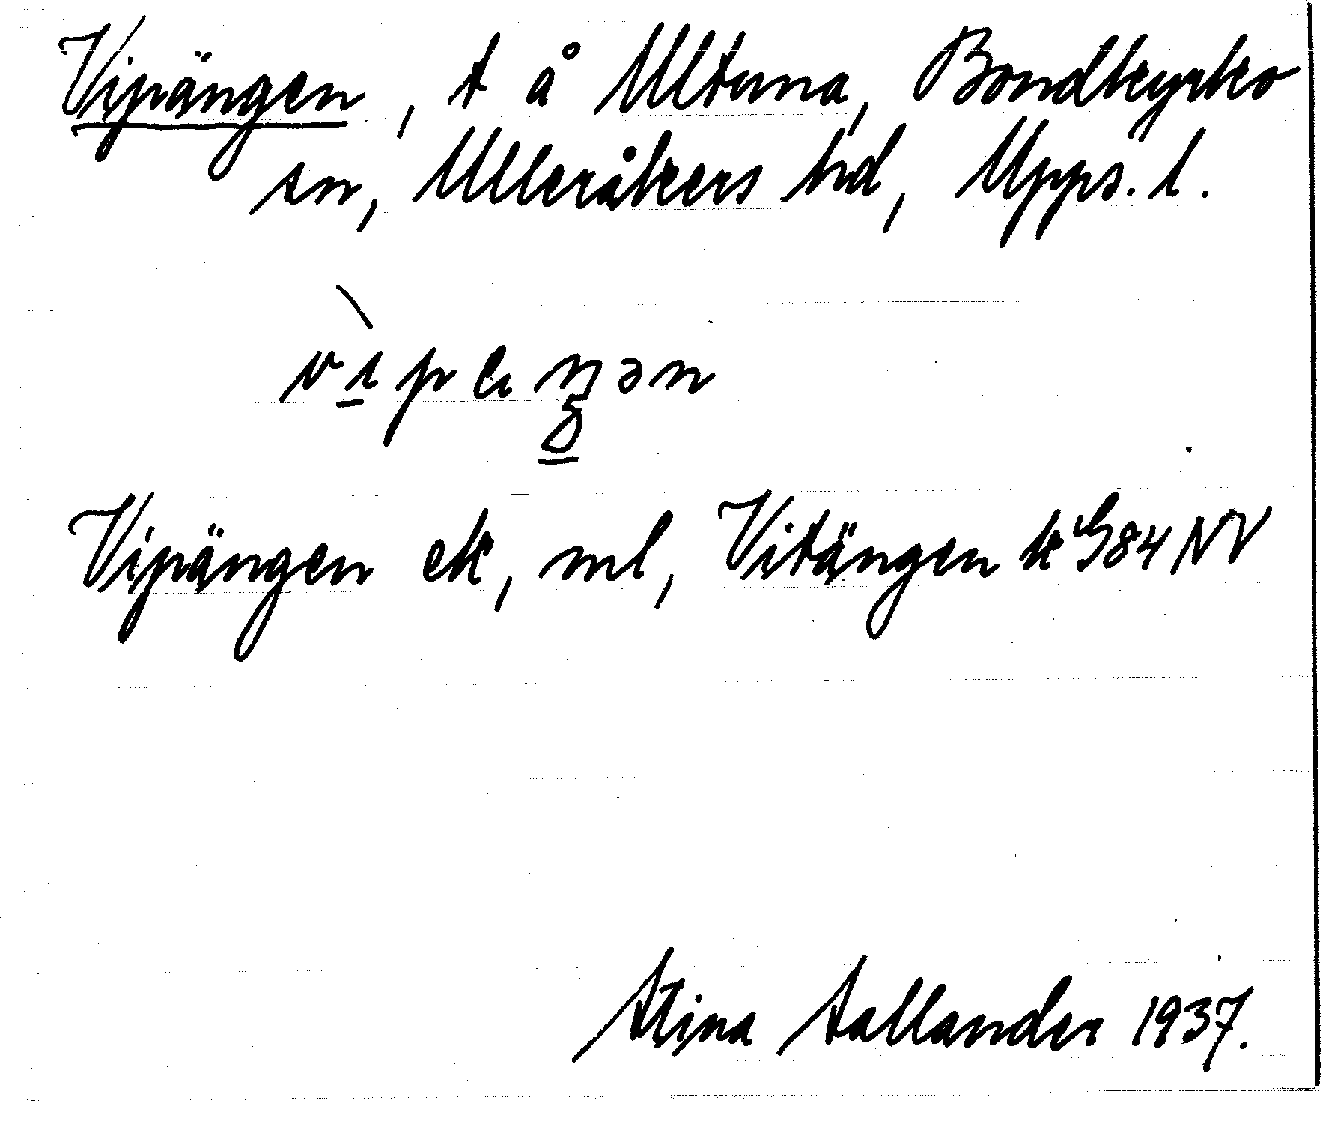 Vipängen, t å Ultuna, Bondkyrko
sn, Ulleråkers hd, Upps. l.
Vipängen ek, ml, Vitängen k G84 NV
Stina Sallander 1937.